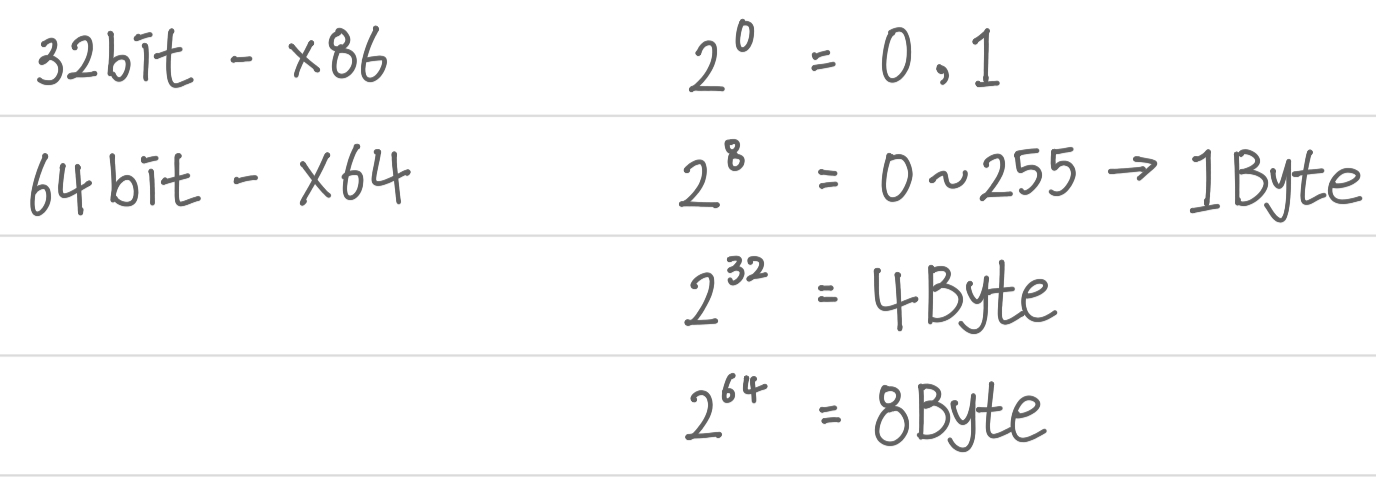 32bit - x86 2⁰ = 0, 1
64bit - X64 2⁸ = 0~255 → 1Byte
2³² = 4Byte
2⁶⁴ = 8Byte